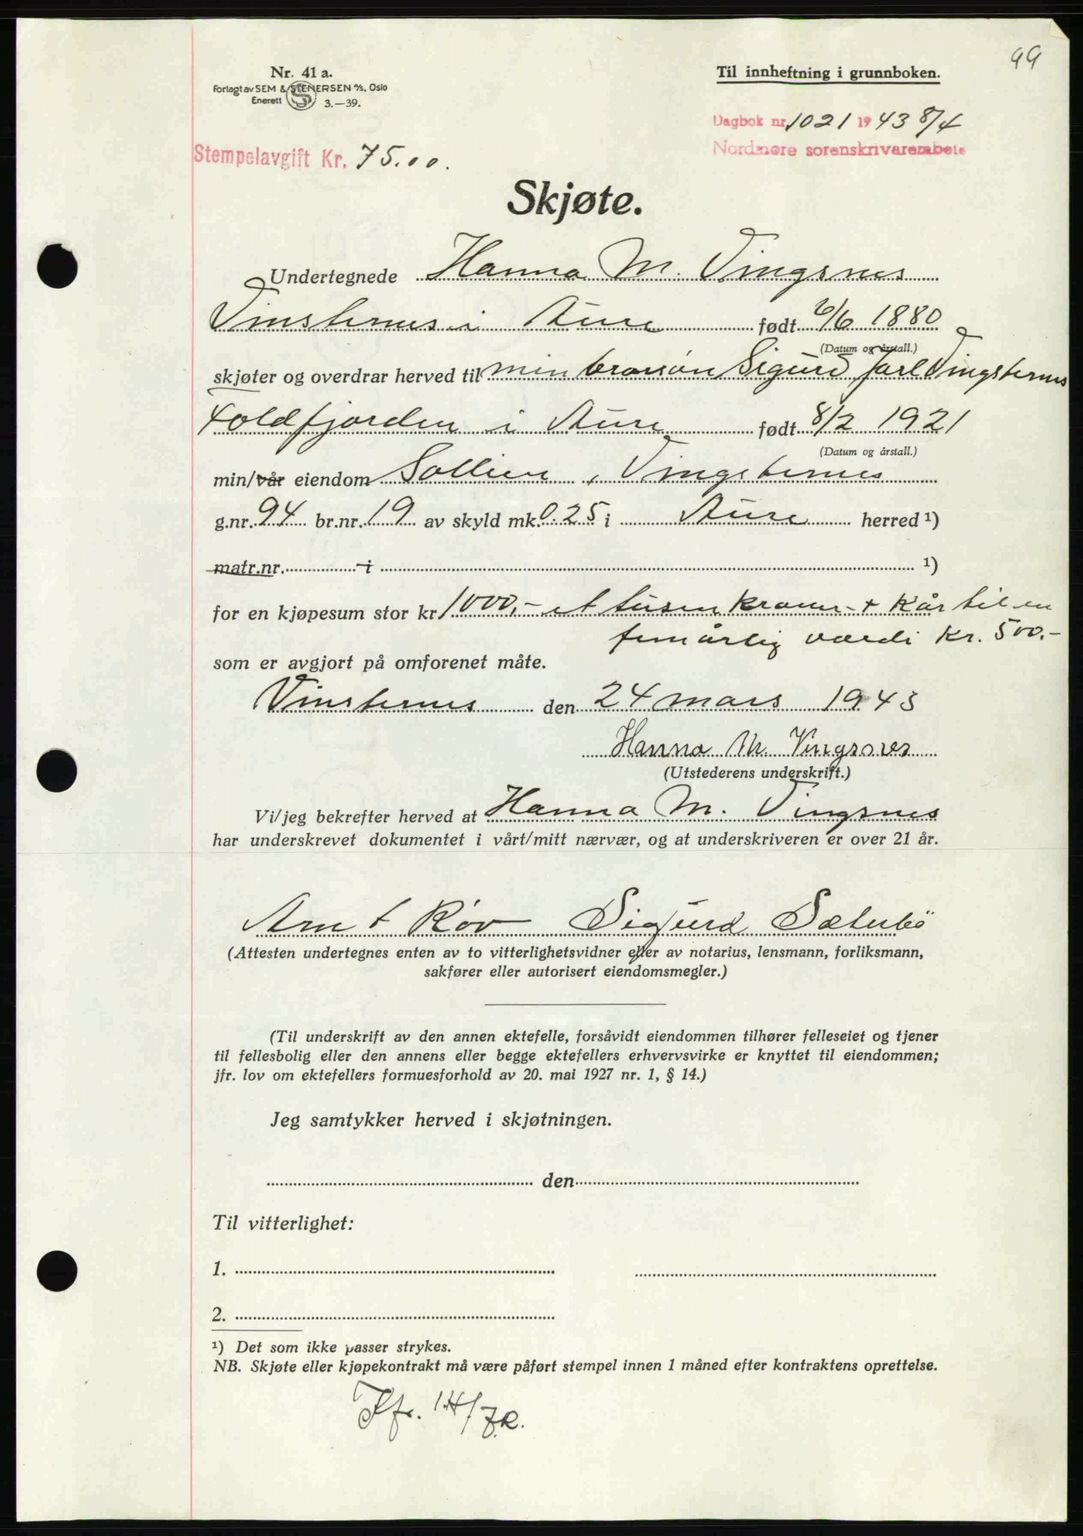 99
Nr. 41 a.
Forlagt av SEM & STENERSEN A/S, Oslo
Enerett 3.—39.
Til innheftning i grunnboken.
Dagbok nr. 1021 1943 8/4
Nordmøre sorenskriverembete
Stempelavgift Kr. 75.00.
Skjøte.
Undertegnede Hanna M. Vingsnes
Vinsternes i Aure født 6/6 1880
(Datum og årstall.)
skjøter og overdrar herved til min brorsøn Sigurd Jarl Vingsternes
Foldfjorden i Aure født 8/2 1921
(Datum og årstall.)
min/vår eiendom Sollien, Vingsternes
g.nr. 94 br.nr. 19 av skyld mk. 0.25 i Aure herred ¹)
matr.nr. i ¹)
for en kjøpesum stor kr. 1000,- et tusen kroner + kår til en
femårlig værdi kr. 500,-
som er avgjort på omforenet måte.
Vinsternes den 24 mars 1943
Hanna M. Vingsnes
(Utstederens underskrift.)
Vi/jeg bekrefter herved at Hanna M. Vingsnes
har underskrevet dokumentet i vårt/mitt nærvær, og at underskriveren er over 21 år.
Arnt Røv Sigurd Sæterbö
(Attesten undertegnes enten av to vitterlighetsvidner eller av notarius, lensmann, forliksmann,
sakfører eller autorisert eiendomsmegler.)
(Til underskrift av den annen ektefelle, forsåvidt eiendommen tilhører felleseiet og tjener
til fellesbolig eller den annens eller begge ektefellers erhvervsvirke er knyttet til eiendommen;
jfr. lov om ektefellers formuesforhold av 20. mai 1927 nr. 1, § 14.)
Jeg samtykker herved i skjøtningen.
den
Til vitterlighet:
1.
2.
¹) Det som ikke passer strykes.
NB. Skjøte eller kjøpekontrakt må være påført stempel innen 1 måned efter kontraktens oprettelse.